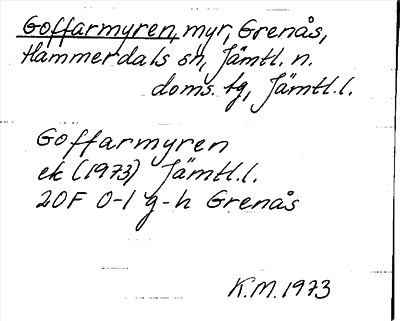 Goffarmyren, myr, Grenås,
Hammerdals sn, Jämtl. n.
doms. tg, Jämtl. l.
Goffarmyren
ek (1973) Jämtl. l.
20F 0-1 g-h Grenås
K.M. 1973